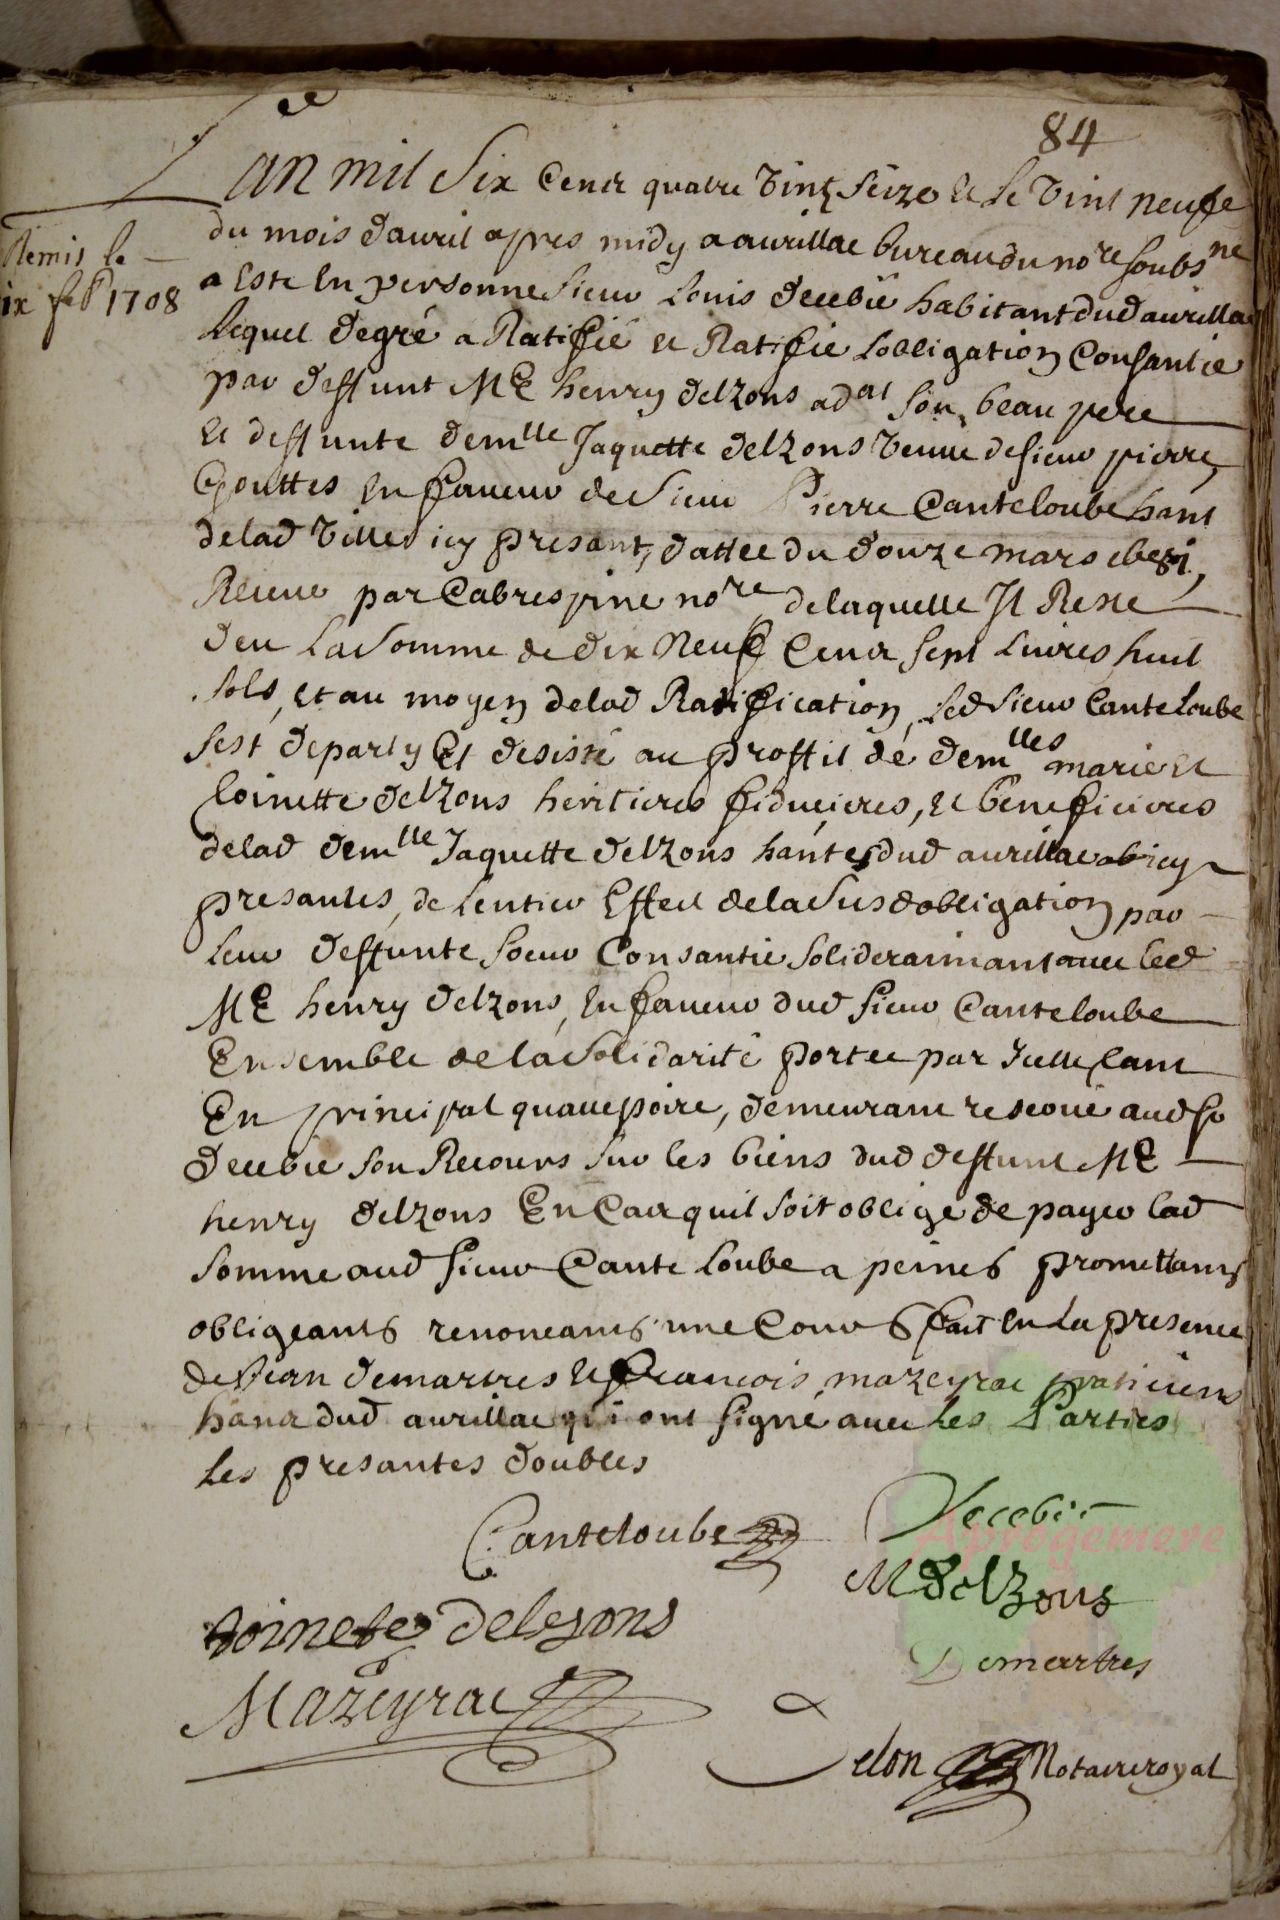 84
L'an mil six cens quatre vint seize et le vint neufe
du mois d'auril apres midy a aurillac bureau du nore soubsne
Remis le
ix feb 1708
a este en personne sieur Louis Decebié habitant dud aurillac
lequel de gré a Ratiffié et Ratiffie Lobligation Consantie
par deffunt Me henry delzons adat son beau pere
et deffunte demlle Jaquette delzons veuue de sieur pierre
Gouttes en faueur de sieur Pierre Canteloube hant
delad ville icy presant, dattee du douze mars
Receue par Cabrespine nore delaquelle Il Reste
deu La somme de dix neuf Cens sept Liures huit
sols, et au moyen delad Ratiffication, Led sieur Canteloube
sest departy Et desisté au proffit de demlles marie et
toinette delzons heritieres fiducieres, et beneficieres
delad demlle Jaquette delzons hantes dud aurillac icy
presantes, de Lentier Effect dela susd obligation par
leur deffunte soeur Consantie solideraimant auec led
Me henry delzons, en faueur dud sieur Canteloube
Ensemble de la solidarité portee par Icelle tant
En principal qu accessoire, demeurant reserué aud sr
Decebie son Recours sur les biens dud deffunt Me
henry delzons En Cas quil soit oblige de payer lad
somme aud sieur Cante Loube a peines promettans
obligeants renonceants une Cour & fait en La presence
de Jean demartres et francois mazeyrac praticiens
hans dud aurillac qui ont signé auec Les Parties
Les presantes doubles
Canteloube
Decebié
M delzons
toinete delesons
Demartres
Mazeyrac
Delon Notaire royal
Aprogemere